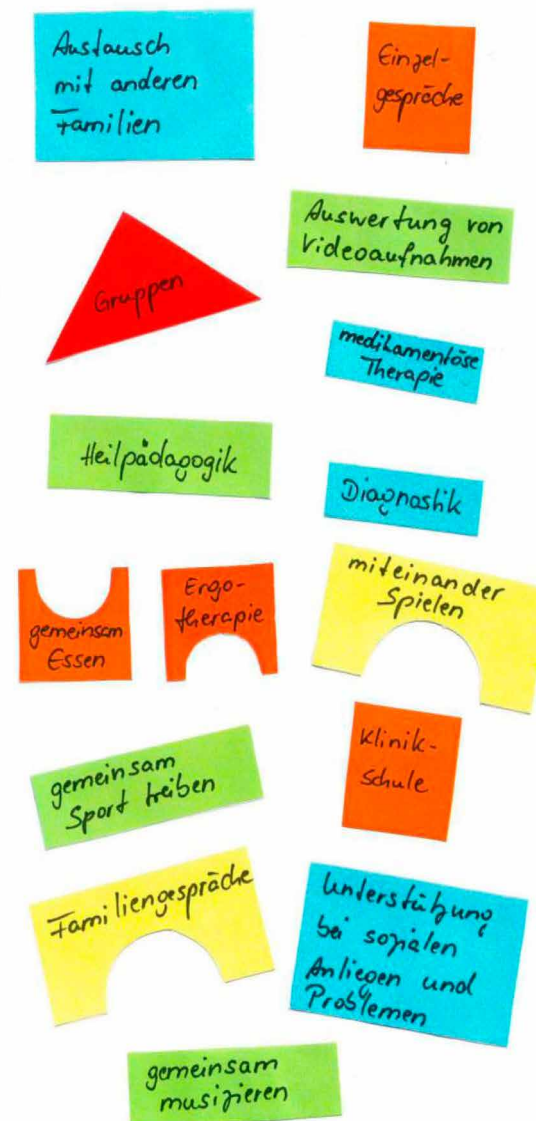 Austausch
mit anderen
Familien
Einzel-
gespräche
Auswertung von
Videoaufnahmen
Gruppen
medikamentöse
Therapie
Heilpädagogik
Diagnostik
miteinander
Spielen
gemeinsam
Essen
Ergo-
therapie
Klinik-
Schule
gemeinsam
Sport treiben
Familiengespräche
Unterstützung
bei sozialen
Anliegen und
Problemen
gemeinsam
musizieren